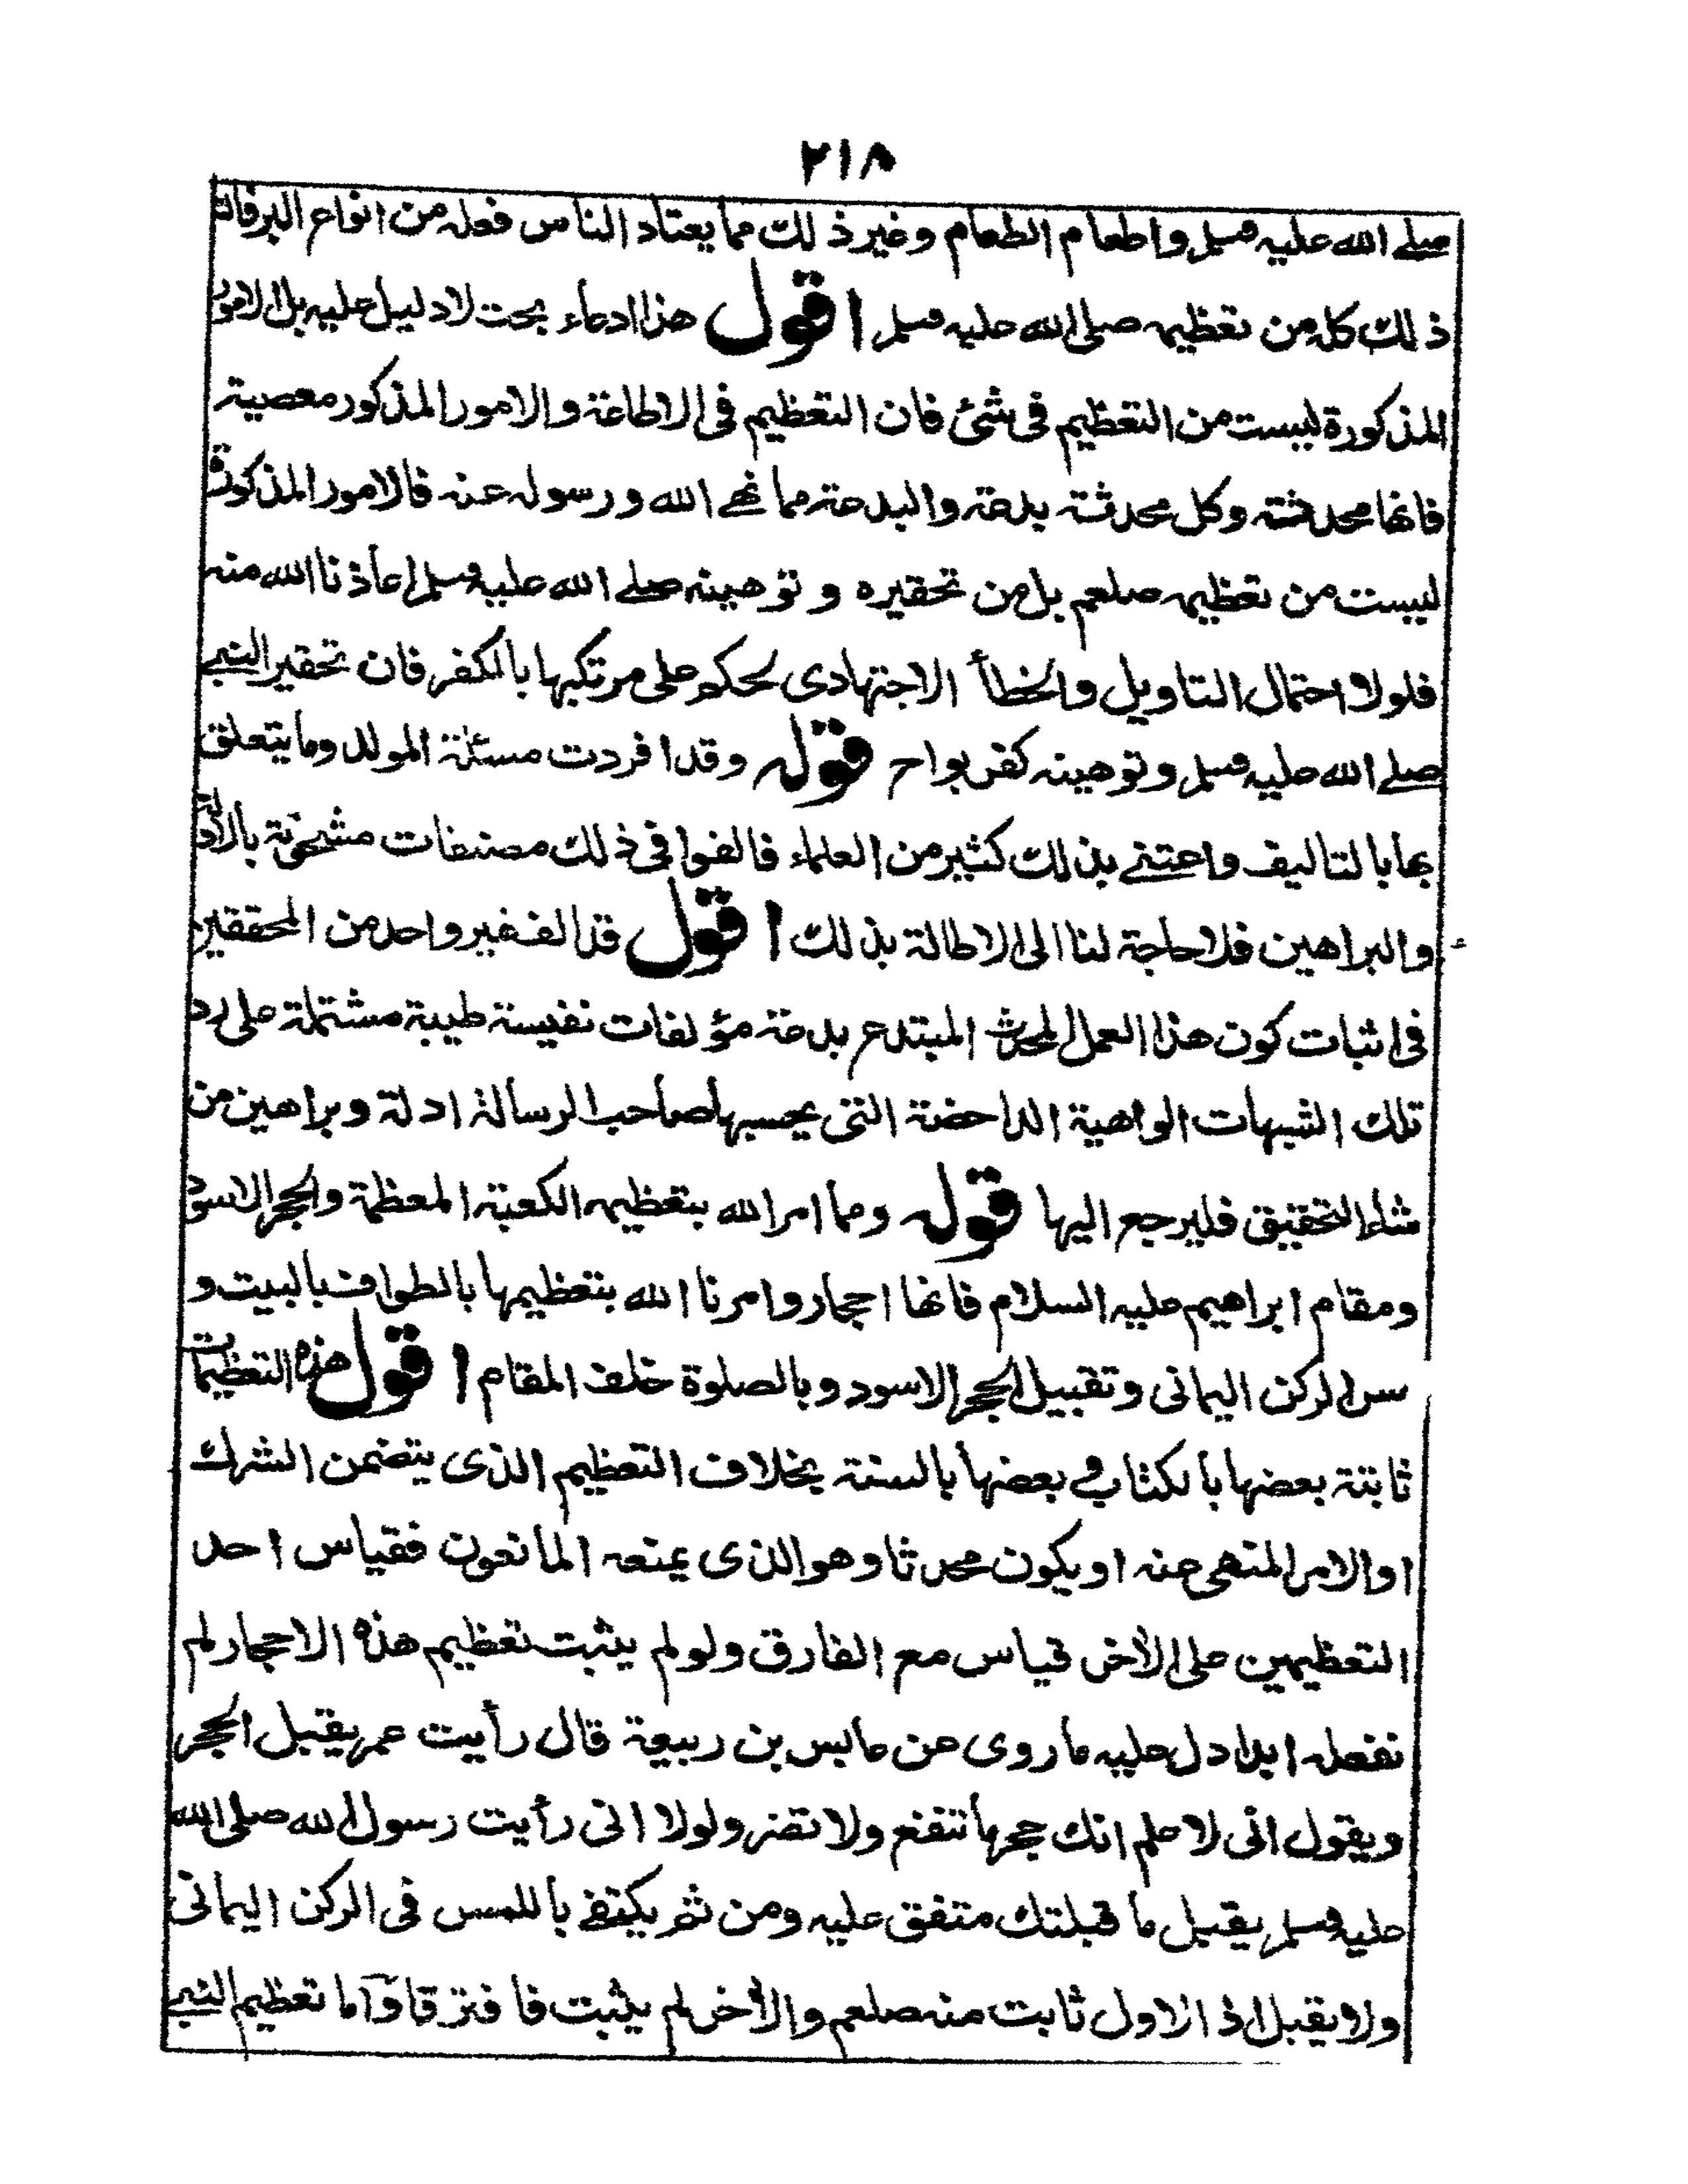 ٢١٨
صلے الله عليه وسلم واطعام الطعام وغير ذلك مما يعتاد الناس فعله من انواع البر فان
ذلك كله من تعظيمه صلى الله عليه وسلم اقول هذا ادعاء بحت لا دليل عليه بل الامور
المذكورة ليست من التعظيم فى شئ فان التعظيم فى الاطاعة والامور المذكور معصية
فانها محدثة وكل محدثة بدعة والبدعة مما نهے الله ورسوله عنه فالامور المذكورة
ليست من تعظيمه صلعم بل من تحقيره وتوهينه صلے الله عليه وسلم اعاذنا الله منه
فلولا احتمال التاويل والخطأ الاجتهادى لحكم على مرتكبها بالكفر فان تحقير النبے
صلے الله عليه وسلم وتوهينه كفر بواح قوله وقد افردت مسئلة المولد وما يتعلق
بها بالتاليف واعتنے بذلك كثير من العلماء فالفوا فى ذلك مصنفات مشحونة بالادلة
والبراهين فلا حاجة لنا الى الاطالة بذلك اقول قد الف غير واحد من المحققين
فى اثبات كون هذا العمل المحدث المبتدع بدعة مؤلفات نفيسة طيبة مشتملة على رد
تلك الشبهات الواهية الداحضة التى يحسبها صاحب الرسالة ادلة وبراهين من
شاء التحقيق فليرجع اليها قوله ومما امر الله بتعظيمه الكعبة المعظمة والحجر الاسود
ومقام ابراهيم عليه السلام فانها احجار وامرنا الله بتعظيمها بالطواف بالبيت و
مس الركن اليمانى وتقبيل الحجر الاسود وبالصلوة خلف المقام اقول هذه التعظيمات
ثابتة بعضها بالكتاب وبعضها بالسنة بخلاف التعظيم الذى يتضمن الشرك
او الامر المنهى عنه او يكون محدثا وهو الذى يمنعه المانعون فقياس احد
التعظيمين على الأخر قياس مع الفارق ولو لم يثبت تعظيم هذه الاحجار لم
نفعله ابدا دل عليه ما روى عن عابس بن ربيعة قال رأيت عمر يقبل الحجر
ويقول انى لاعلم انك حجر ما تنفع ولا تضر ولولا انى رأيت رسول الله صلى الله
عليه وسلم يقبل ما قبلتك متفق عليه ومن ثم يكتفے باللمس فى الركن اليمانى
ولا يقبل اذ الاول ثابت منه صلعم والأخر لم يثبت فافترقا واما تعظيم النبے